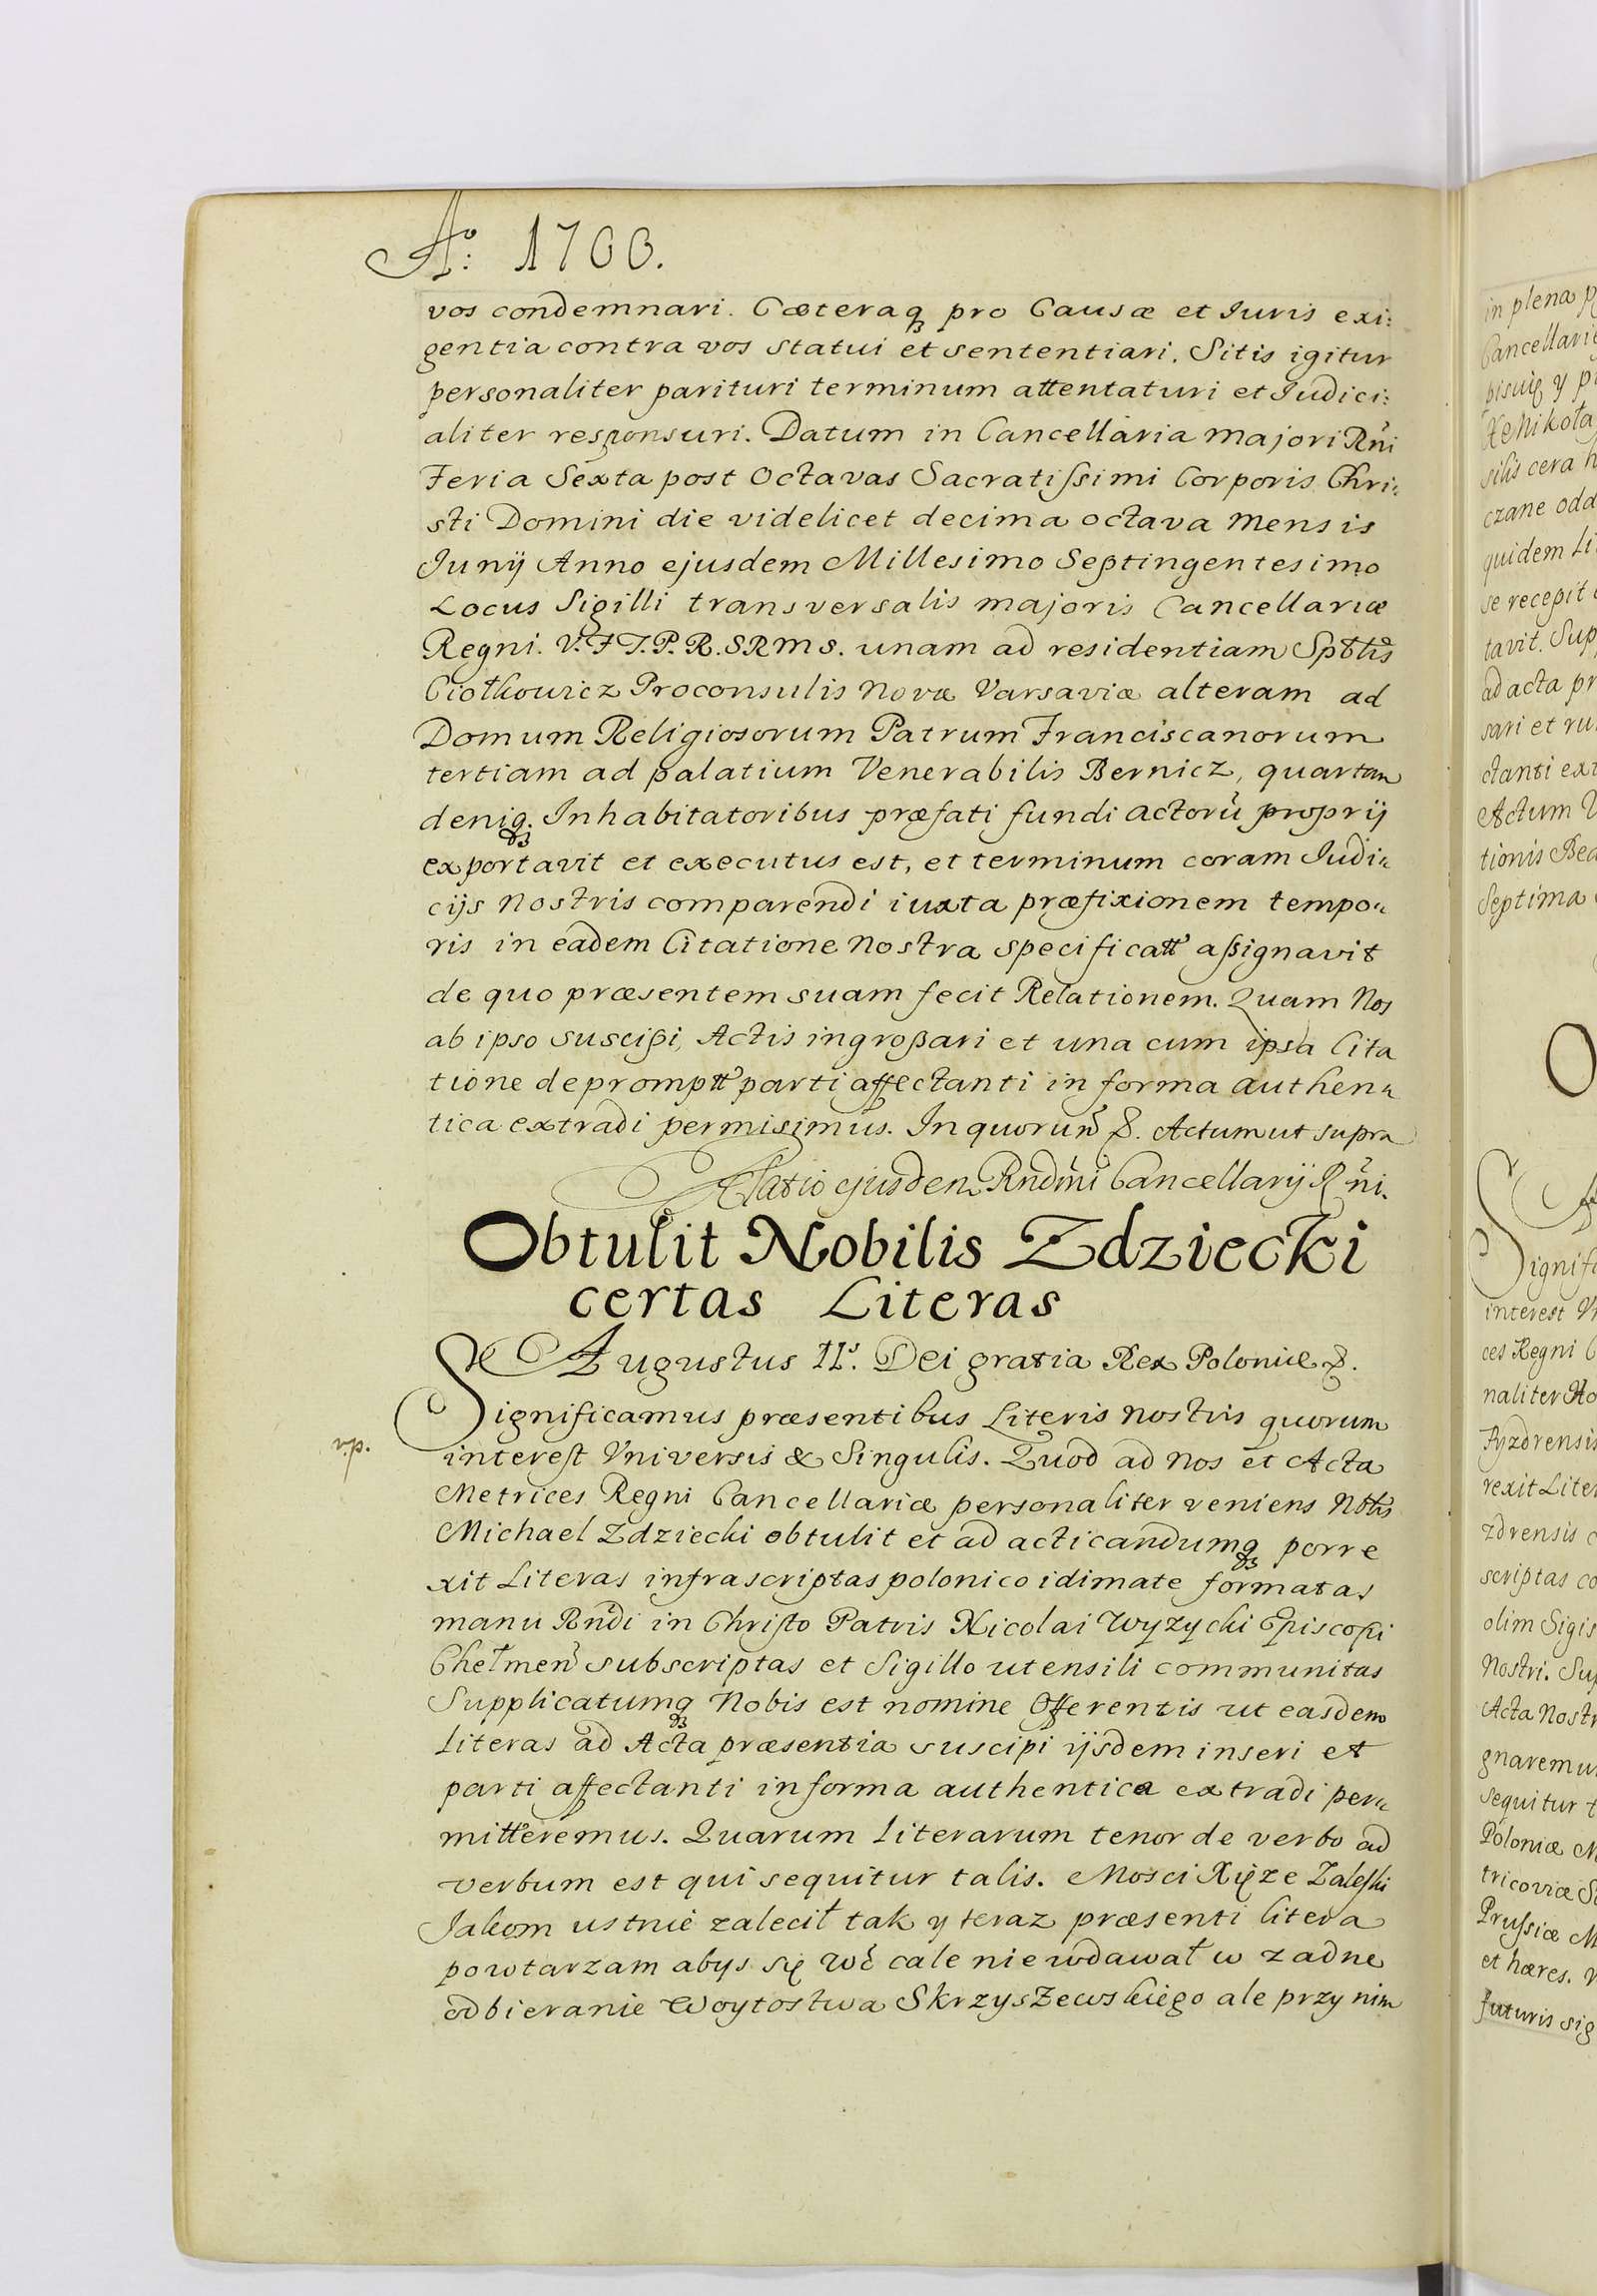 Aº: 1700.
vos condemnari. Cæteraqꝫ pro Causæ et Iuris exi:
gentia contra vos statui et sententiari. Sitis igitur
personaliter parituri terminum attentaturi et Iudici:
aliter responsuri. Datum in Cancellaria majori Rñi
Feria Sexta post Octavas Sacratissimi Corporis Chri:
sti Domini die videlicet decima octava Mensis
Iunij Anno ejusdem Millesimo Septingentesimo
Locus Sigilli transversalis majoris Cancellariæ
Regni. V.F.T.P.R.SRMS. unam ad residentiam Spttis
Ciołkowicz Proconsulis Novæ Varsaviæ alteram ad
Domum Religiosorum Patrum Franciscanorum
tertiam ad palatium Venerabilis Bernicz, quartam
deniqꝫ. Inhabitatoribus præfati fundi actorũ proprij
exportavit et executus est, et terminum coram Iudi:
cijs Nostris comparendi iuxta præfixionem tempo:
ris in eadem Citatione Nostra specificatt assignavit
de quo præsentem suam fecit Relationem. Quam Nos
ab ipso suscipi, Actis ingrossari et una cum ipsa Cita
tione depromptt parti affectanti in forma authen:
tica extradi permisimus. In quorum &. Actum ut supra
Relatio ejusdem Rndmi Cancellarij Rñi.
Obtulit Nobilis Zdziecki
certas Literas
Augustus IIs. Dei gratia Rex Poloniæ &.
Significamus præsentibus Literis Nostris quorum
v.p.
interest Vniversis & Singulis. Quod ad Nos et Acta
Metrices Regni Cancellariæ personaliter veniens Nbtis
Michael Zdziecki obtulit et ad acticandumqꝫ porre
xit Literas infrascriptas polonico idimate formatas
manu Rñdi in Christo Patris Nicolai Wyzycki Episcopi
Chełmeñ subscriptas et Sigillo utensili communitas
Supplicatumqꝫ Nobis est nomine Offerentis ut easdem
Literas ad Acta præsentia suscipi ijsdem inseri et
parti affectanti in forma authentica extradi per:
mitteremus. Quarum Literarum tenor de verbo ad
verbum est qui sequitur talis. Mosci Xięże Zaleski
Jakom ustnie zalecił tak y teraz præsenti litera
powtarzam abys się Wć cale nie wdawał w zadne
odbieranie Woytostwa Skrzyszewskiego ale przy nim